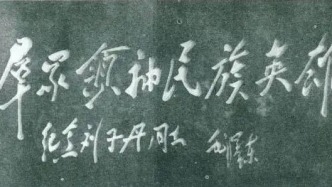 羣眾領袖民族英雄
纪念刘子丹同志 毛泽东